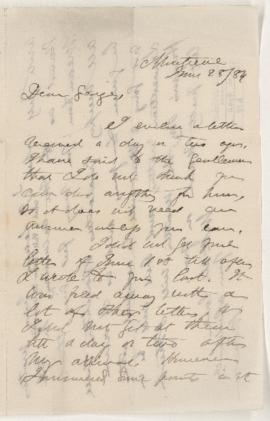 June 28/89
Dear Gorges,
I enclose a letter
received a day or two ago.
I have said to the gentleman
that I do not think you
can do anything for him,
so it does not need an
answer unless you care.
I did not get your
letter of June 1st till after
I wrote to you last. It
was filed away with a
lot of other letters, &
I did not get at them
till a day or two after
my arrival. However
I answered some points in it